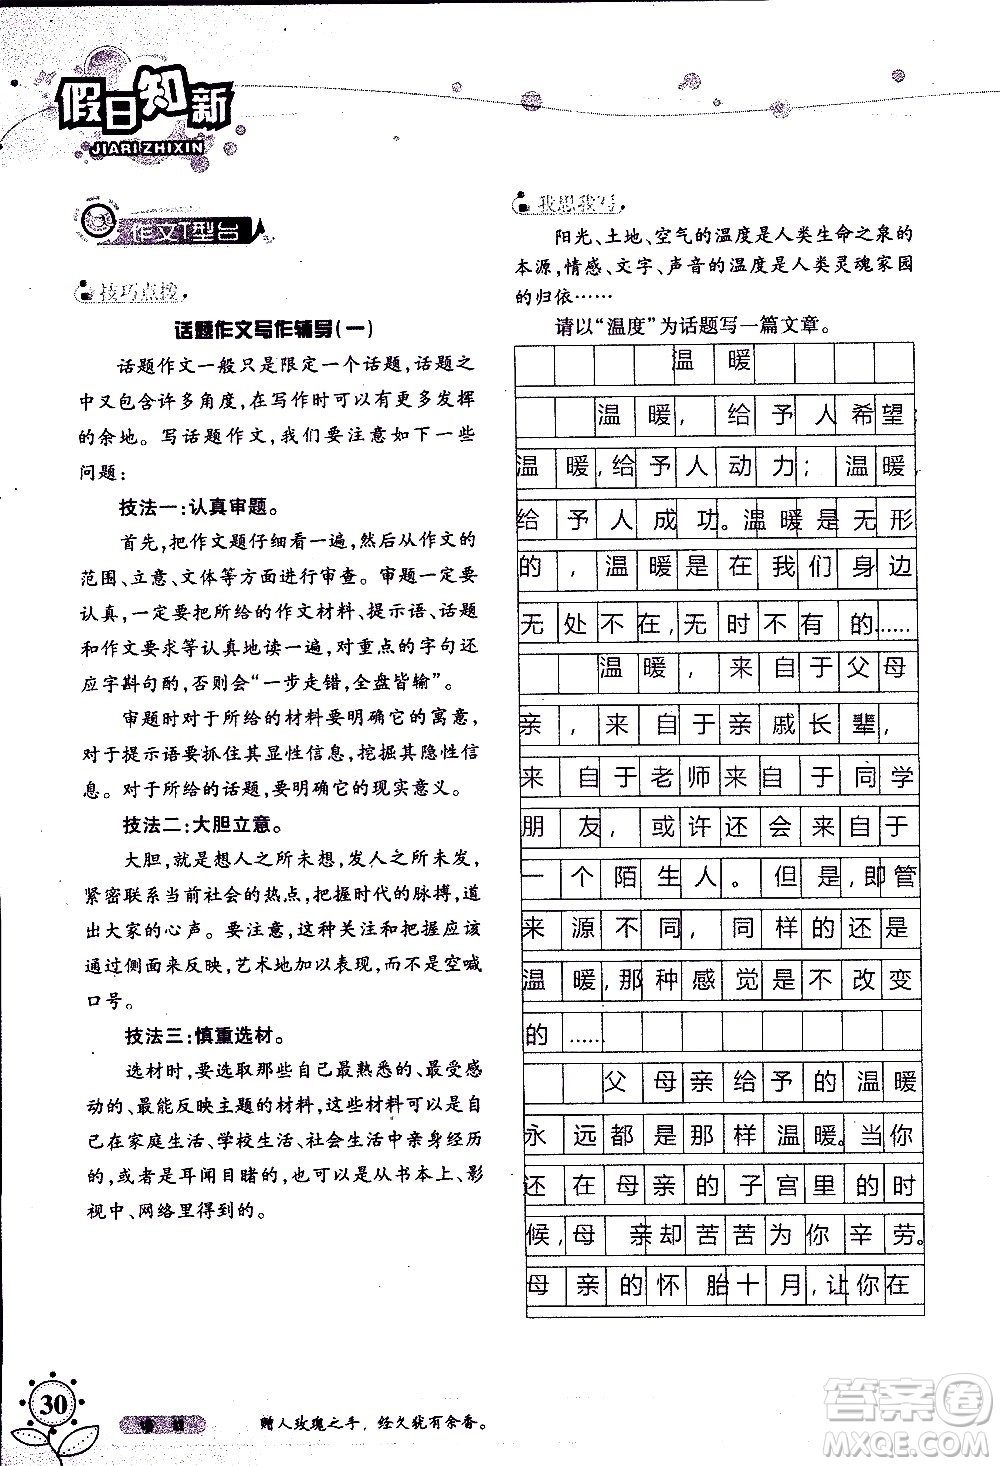 假日知新
JIARI ZHIXIN
作文T型台
技巧点拨
话题作文写作辅导(一)
话题作文一般只是限定一个话题,话题之
中又包含许多角度,在写作时可以有更多发挥
的余地。写话题作文,我们要注意如下一些
问题:
技法一:认真审题。
首先,把作文题仔细看一遍,然后从作文的
范围、立意、文体等方面进行审查。审题一定要
认真,一定要把所给的作文材料、提示语、话题
和作文要求等认真地读一遍,对重点的字句还
应字斟句酌,否则会“一步走错,全盘皆输”。
审题时对于所给的材料要明确它的寓意,
对于提示语要抓住其显性信息,挖掘其隐性信
息。对于所给的话题,要明确它的现实意义。
技法二:大胆立意。
大胆,就是想人之所未想,发人之所未发,
紧密联系当前社会的热点,把握时代的脉搏,道
出大家的心声。要注意,这种关注和把握应该
通过侧面来反映,艺术地加以表现,而不是空喊
口号。
技法三:慎重选材。
选材时,要选取那些自己最熟悉的、最受感
动的、最能反映主题的材料,这些材料可以是自
己在家庭生活、学校生活、社会生活中亲身经历
的,或者是耳闻目睹的,也可以是从书本上、影
视中、网络里得到的。
我思我写
阳光、土地、空气的温度是人类生命之泉的
本源,情感、文字、声音的温度是人类灵魂家园
的归依……
请以“温度”为话题写一篇文章。
温暖
温暖,给予人希望;
温暖,给予人动力;温暖
给予人成功。温暖是无形
的,温暖是在我们身边
无处不在,无时不有的……
温暖,来自于父母
亲,来自于亲戚长辈,
来自于老师来自于同学
朋友,或许还会来自于
一个陌生人。但是,即管
来源不同,同样的还是
温暖,那种感觉是不改变
的……
父母亲给予的温暖
永远都是那样温暖。当你
还在母亲的子宫里的时
候,母亲却苦苦为你辛劳。
母亲的怀胎十月,让你在
30
赠人玫瑰之手,经久犹有余香。
答案圈
MXQE.COM